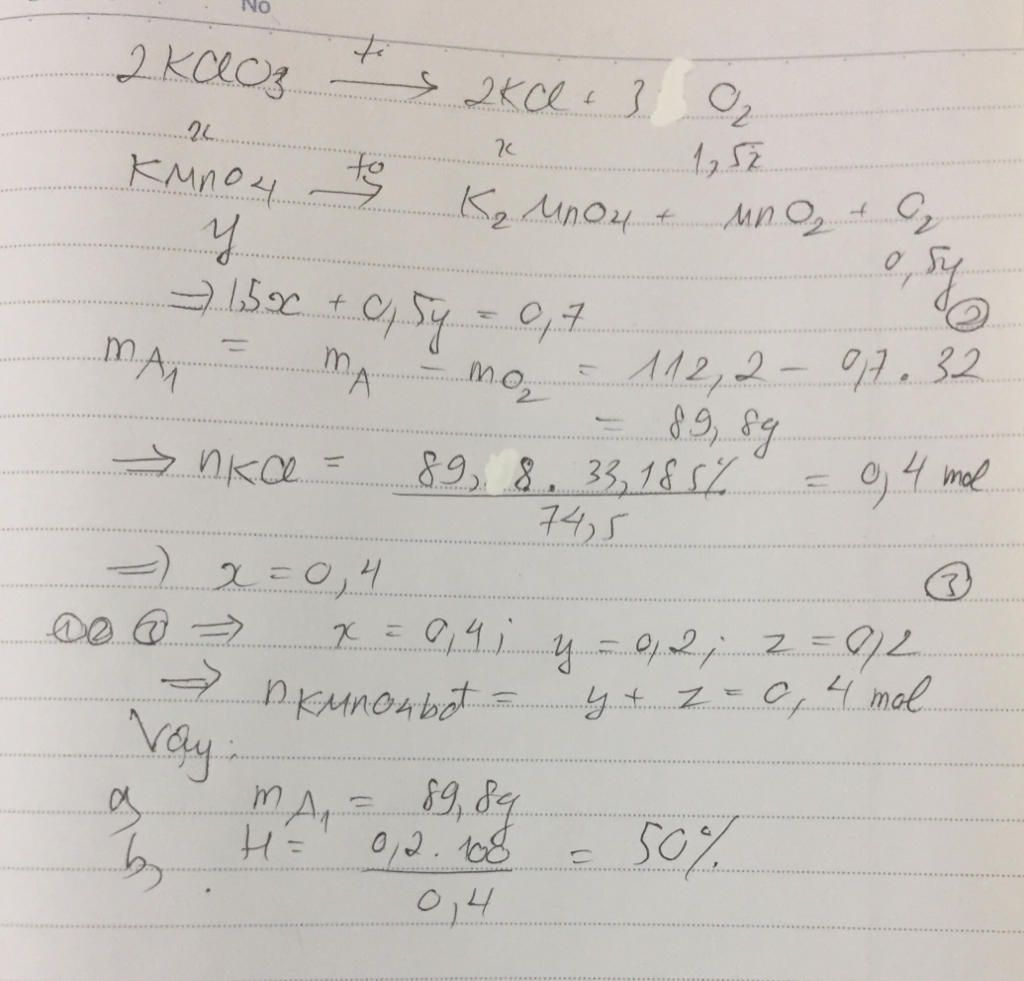 No
2KClO3 t° → 2KCl + 3 O2
x x 1,5x
KMnO4 t° → K2MnO4 + MnO2 + O2
y 0,5y
⇒ 1,5x + 0,5y = 0,7 ②
mA1 = mA - mO2 = 112,2 - 0,7.32
= 89,8g
⇒ nKCl = 89,8.33,185% / 74,5 = 0,4 mol
⇒ x = 0,4 ③
①②③ ⇒ x = 0,4; y = 0,2; z = 0,2
⇒ nKMnO4bđ = y + z = 0,4 mol
Vậy:
a, mA1 = 89,8g
b, H = 0,2.100 / 0,4 = 50%